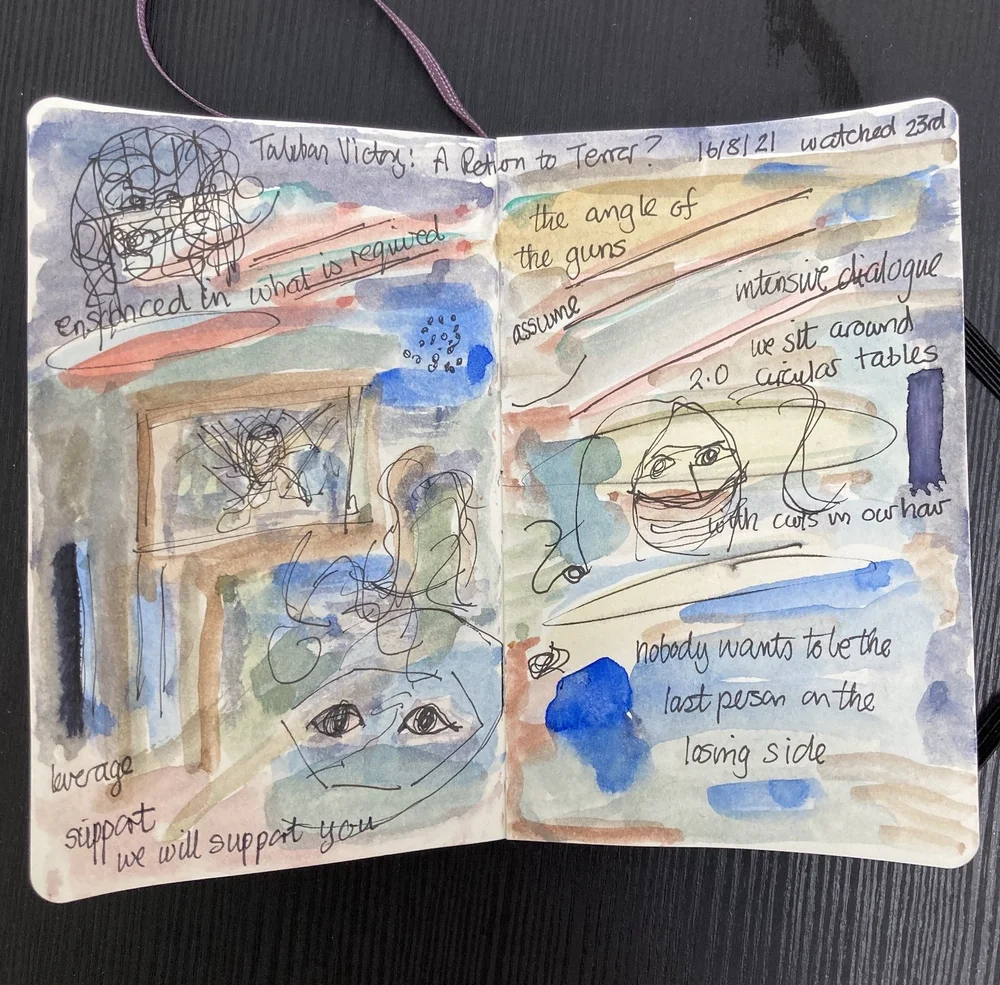 Taleban Victory: A Return to Terror? 16/8/21 watched 23rd
enhanced in what is required
leverage
support
we will support you
the angle of
the guns
assume
intensive dialogue
we sit around
2.0 circular tables
with curls in our hair
nobody wants to be the
last person on the
losing side